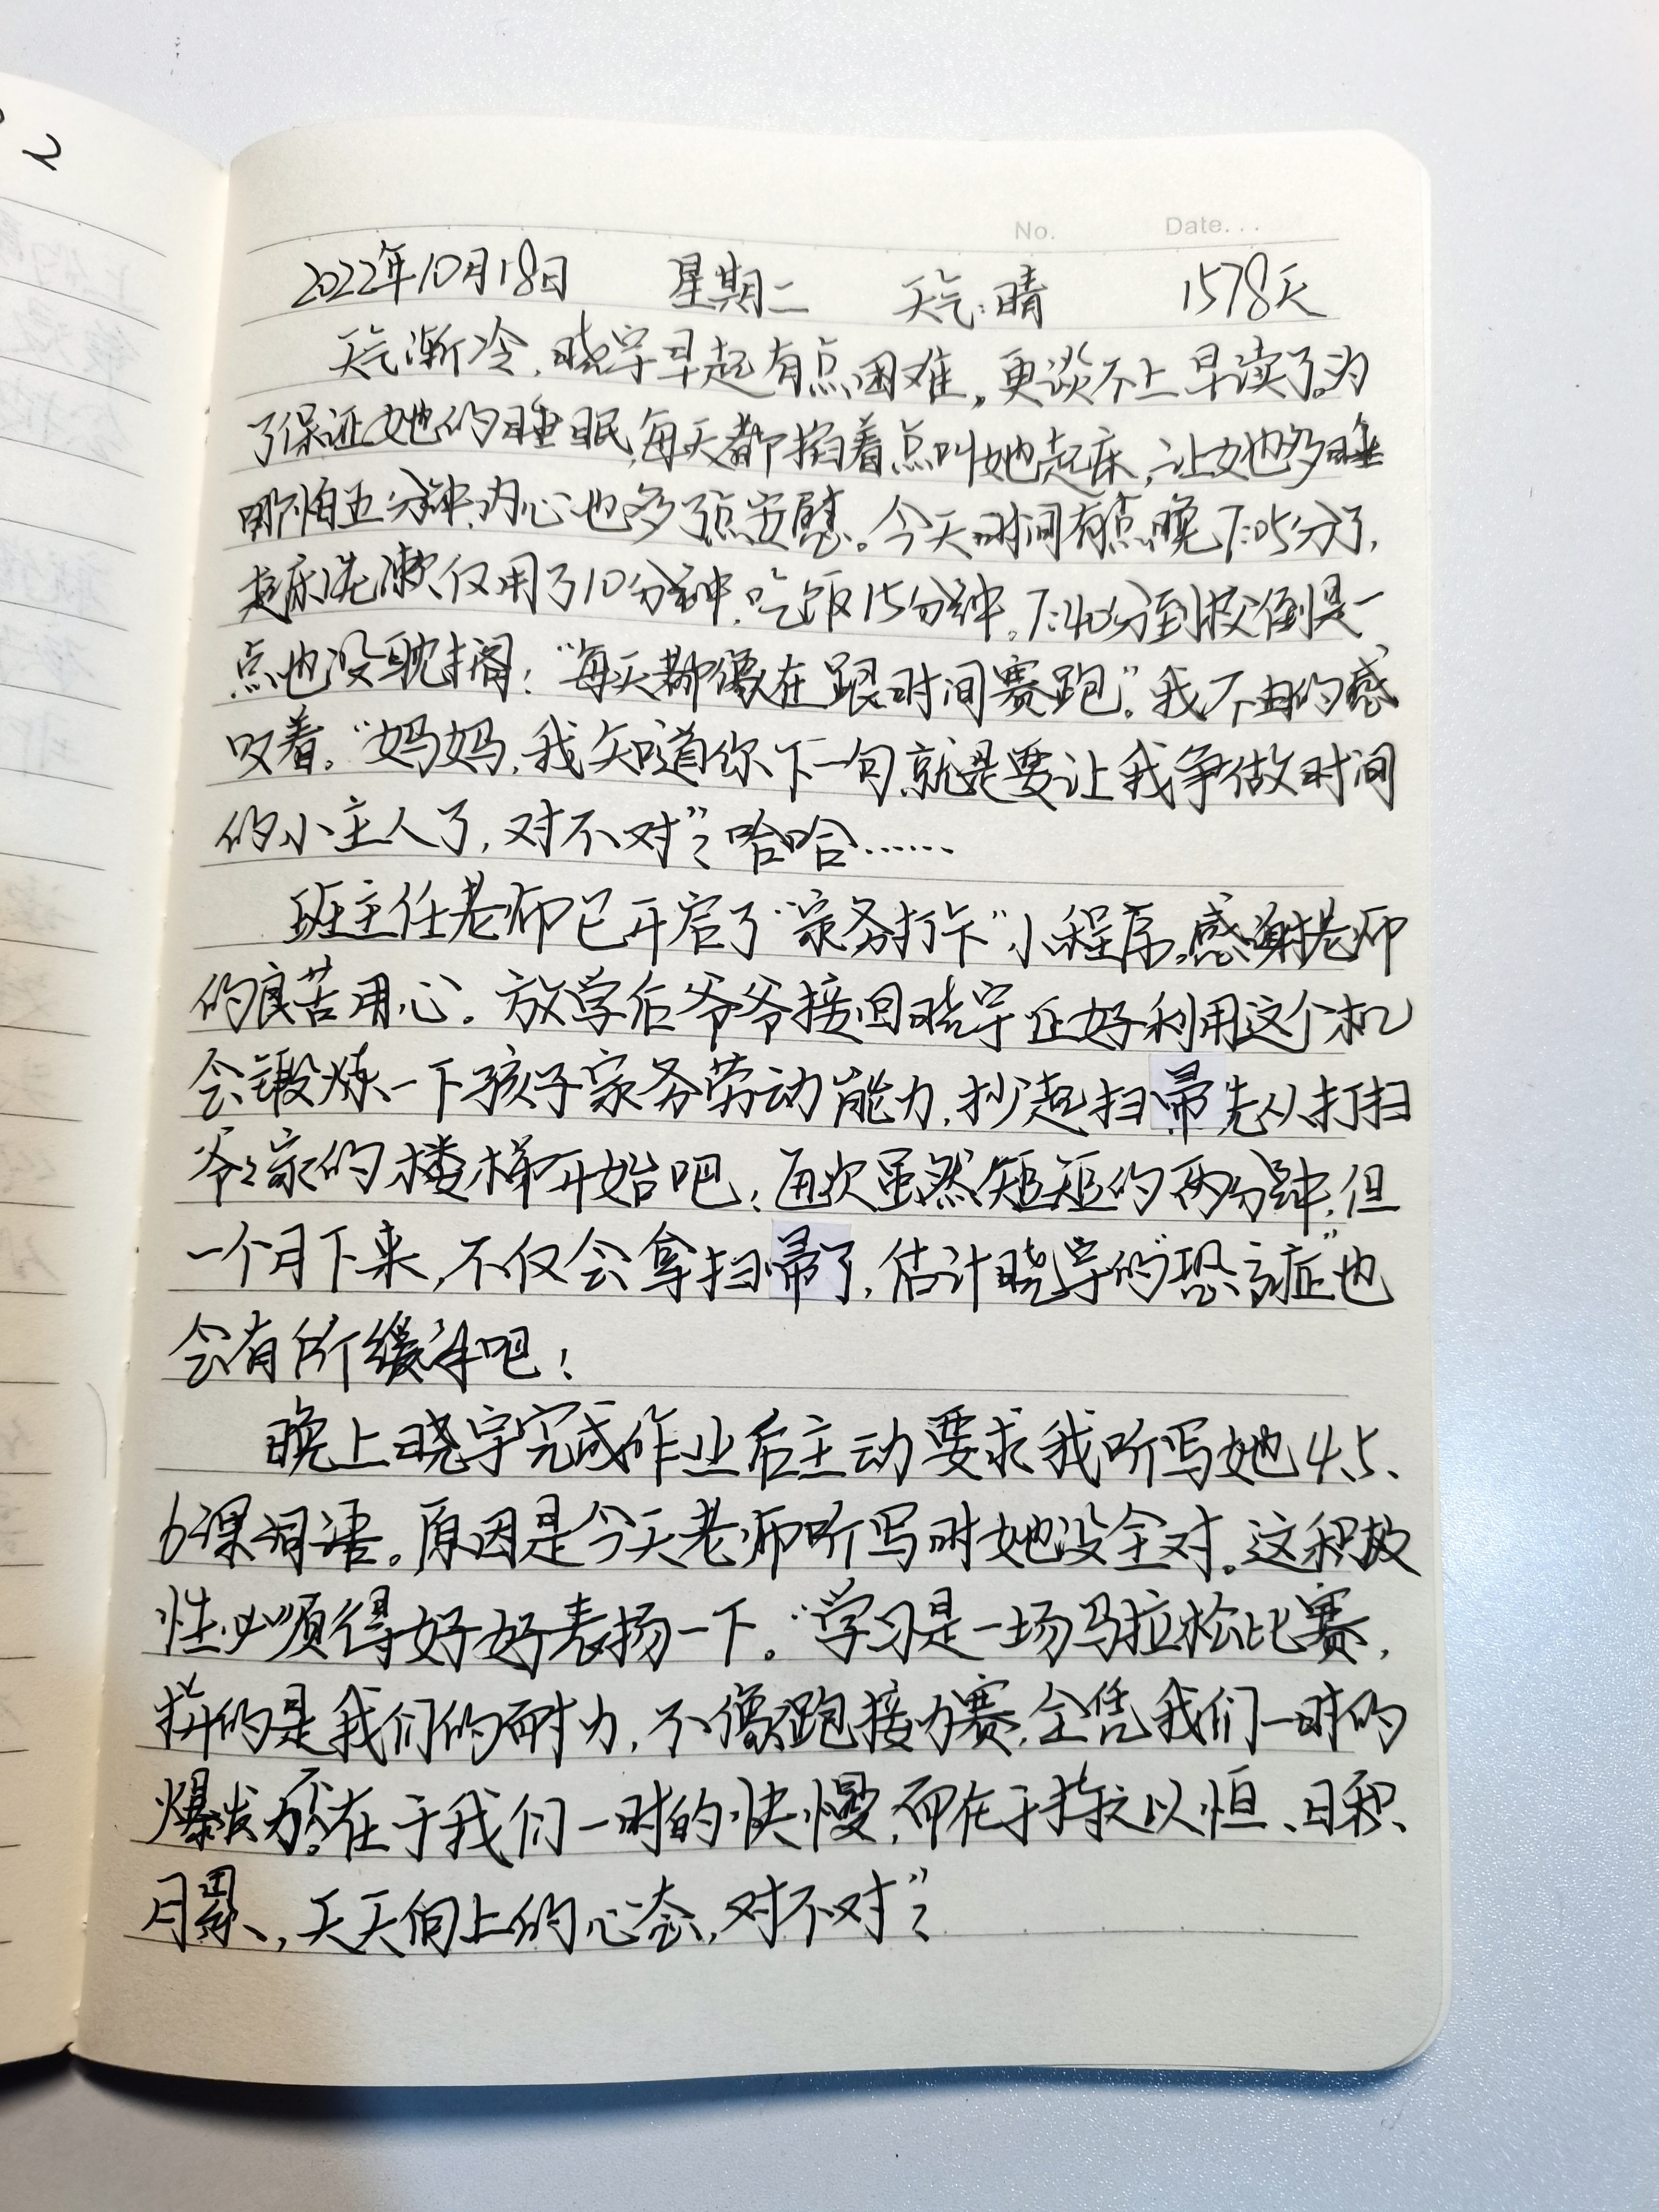 No.    Date...
2022年10月18日 星期二 天气:晴 1578天
天气渐冷,晓宇早起有点困难,更谈不上早读了。为
了保证她的睡眠,每天都掐着点叫她起床,让她多睡
哪怕五分钟,内心也多了点安慰。今天时间有点晚7:05分了,
起床洗漱仅用了10分钟,吃饭15分钟。7:40分到校倒是一
点也没耽搁!"每天都像在跟时间赛跑"。我不由的感
叹着。"妈妈,我知道你下一句就是要让我争做时间
的小主人了,对不对"?哈哈……
班主任老师已开启了"家务打卡"小程序,感谢老师
的良苦用心。放学后爷爷接回晓宇正好利用这个机
会锻炼一下孩子家务劳动能力,抄起扫帚先从打扫
爷爷家的楼梯开始吧!每次虽然短短的两分钟,但
一个月下来,不仅会拿扫帚了,估计晓宇的"恐高症"也
会有所缓解吧!
晚上晓宇完成作业后主动要求我听写她4、5、
6课词语。原因是今天老师听写时她没全对。这积极
性必须得好好表扬一下。"学习是一场马拉松比赛,
拼的是我们的耐力,不像跑接力赛,全凭我们一时的
爆发力。不在于我们一时的快慢,而在于持之以恒、日积
月累、,天天向上的心态,对不对"?